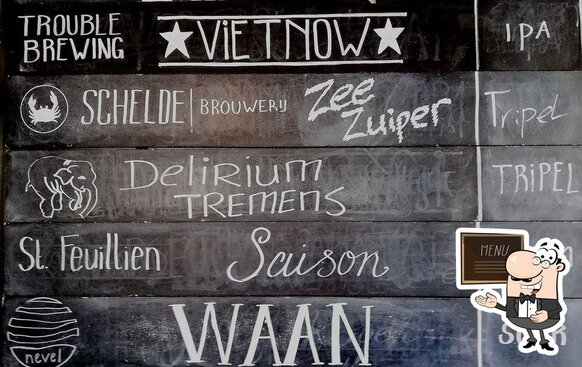 TROUBLE BREWING ViETNOW IPA
SCHELDE BROUWERIJ Zee Zuiper Tripel
DeLiRiUM TREMENS TRiPEL
St. Feuillien Saison
nevel WAAN
MENU